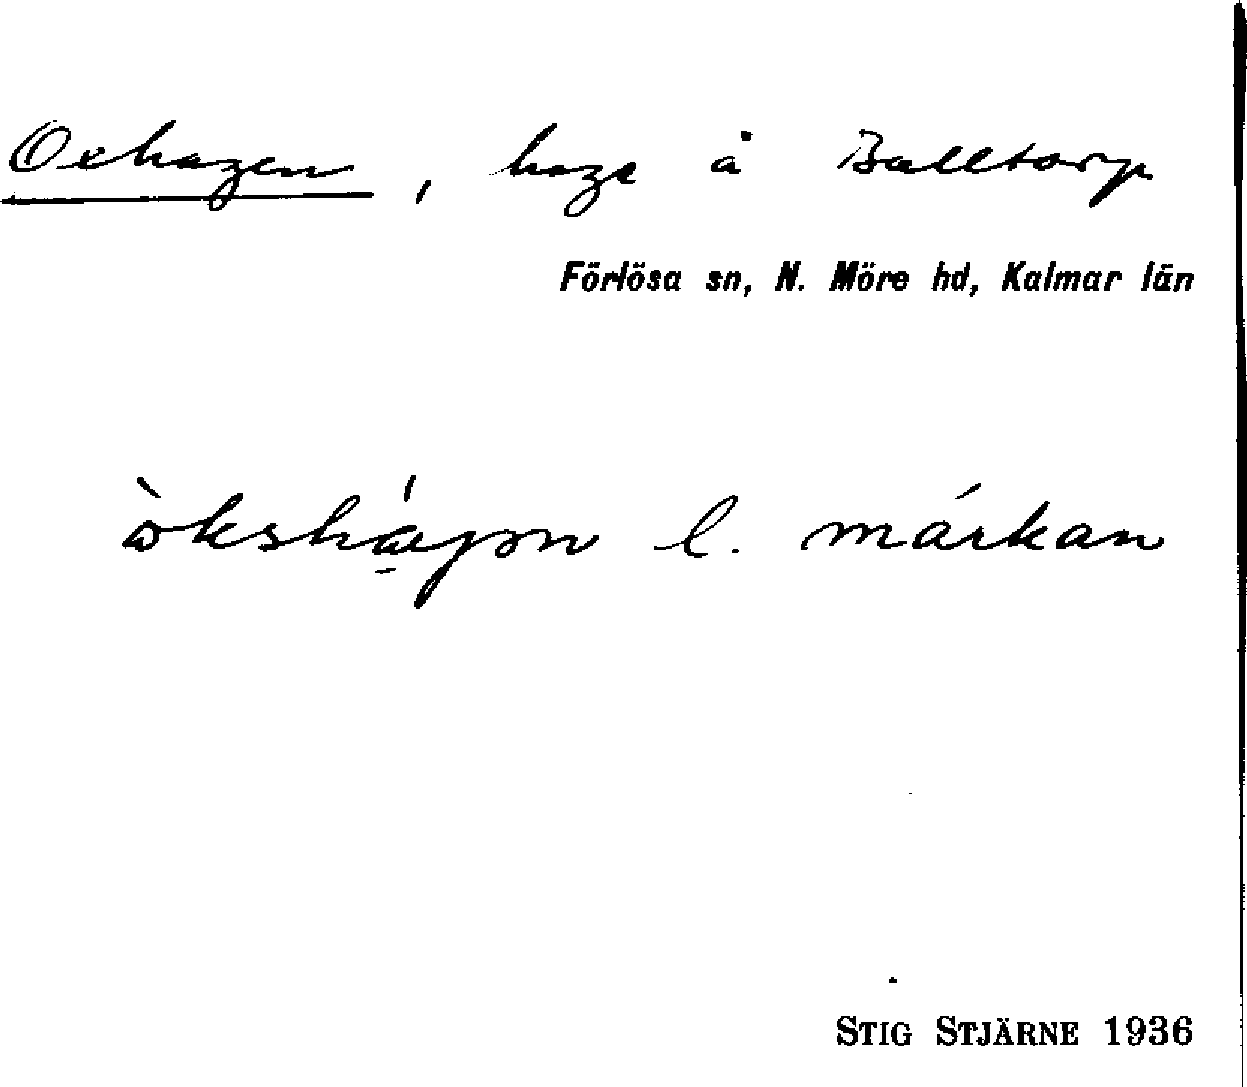 Oxhagen, hage å Balltorp
Förlösa sn, N. Möre hd, Kalmar län
òkshágɘn l. márkan
STIG STJÄRNE 1936